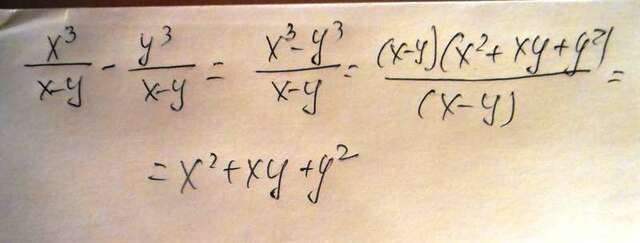 x³/(x-y) - y³/(x-y) = (x³-y³)/(x-y) = (x-y)(x²+xy+y²)/(x-y) =
= x²+xy+y²